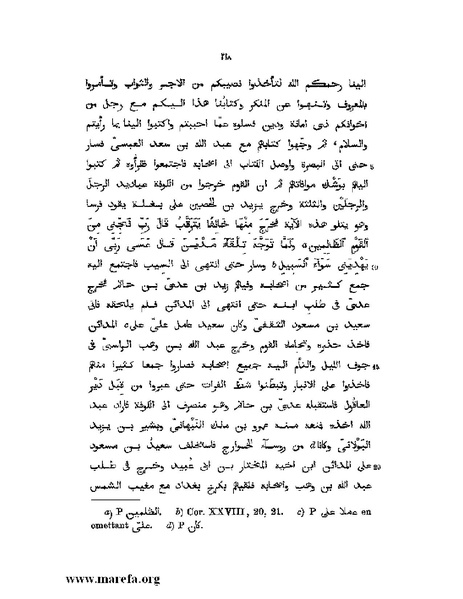 ٢١٨
الينا رحمكم الله لتأخذوا نصيبكم من الاجر والثواب وتأمروا
بالمعروف وتنهوا عن المنكر وكتابنا هذا اليكم مع رجل من
اخوانكم ذى امانة ودين فسلوه عمّا احببتم واكتبوا الينا بما رأيتم
والسلام، ثم وجّهوا كتابهم مع عبد الله بن سعد العبسىّ فسار
حتى اتى البصرة واوصل الكتاب الى اصحابه فاجتمعوا فقرأوه ثم كتبوا
اليهم بوشك موافاتهم ثم ان القوم خرجوا من الكوفة عباديد الرجل
والرجلَيْن والثلثة وخرج يزيد بن الحصين على بغلة يقود فرسا
وهو يتلو هذه الآية فَخَرَجَ مِنْهَا خَائِفًا يَتَرَقَّبُ قَالَ رَبِّ نَجِّنِى مِنَ
ٱلْقَوْمِ ٱلظَّلِمِينَ a وَلَمَّا تَوَجَّهَ تِلْقَاءَ مَدْيَنَ قَالَ عَسَى رَبِّى أَنْ
يَهْدِيَنِى سَوَاءَ ٱلسَّبِيلِ b وسار حتى انتهى الى السيب فاجتمع اليه 10
جمع كثير من اصحابه وفيهم زيد بن عدىّ بن حاتم فخرج
عدىّ فى طلب ابنه حتى انتهى الى المدائن فلم يلحقه فاتى
سعيد بن مسعود الثقفىّ وكان سعيد عامل علىّ على c المدائن
فاخذ حذره وتحاماه القوم وخرج عبد الله بن وهب الراسبىّ فى
جوف الليل والتأم اليه جميع اصحابه فصاروا جمعا كثيرا منهم 15
فاخذوا على الانبار وتبطّنوا شطّ الفرات حتى عبروا من قبَل دَيْر
العاقول فاستقبله عدىّ بن حاتم وهو منصرف الى الكوفة فاراد عبد
الله اخذه فمنعه منه عمرو بن ملك النَّبْهانىّ وبشير بن يزيد
البَوْلانىّ وكانا d من روساء الخوارج فاستخلف سعيدُ بن مسعود
على المدائن ابن اخيه المختار بن ابى عُبيد وخرج فى طلب 20
عبد الله بن وهب واصحابه فلقيهم بكرخ بغداد مع مغيب الشمس
a) P الظلمين. b) Cor. XXVIII, 20, 21. c) P عملا على en
omettant علىّ. d) P كان.
www.marefa.org